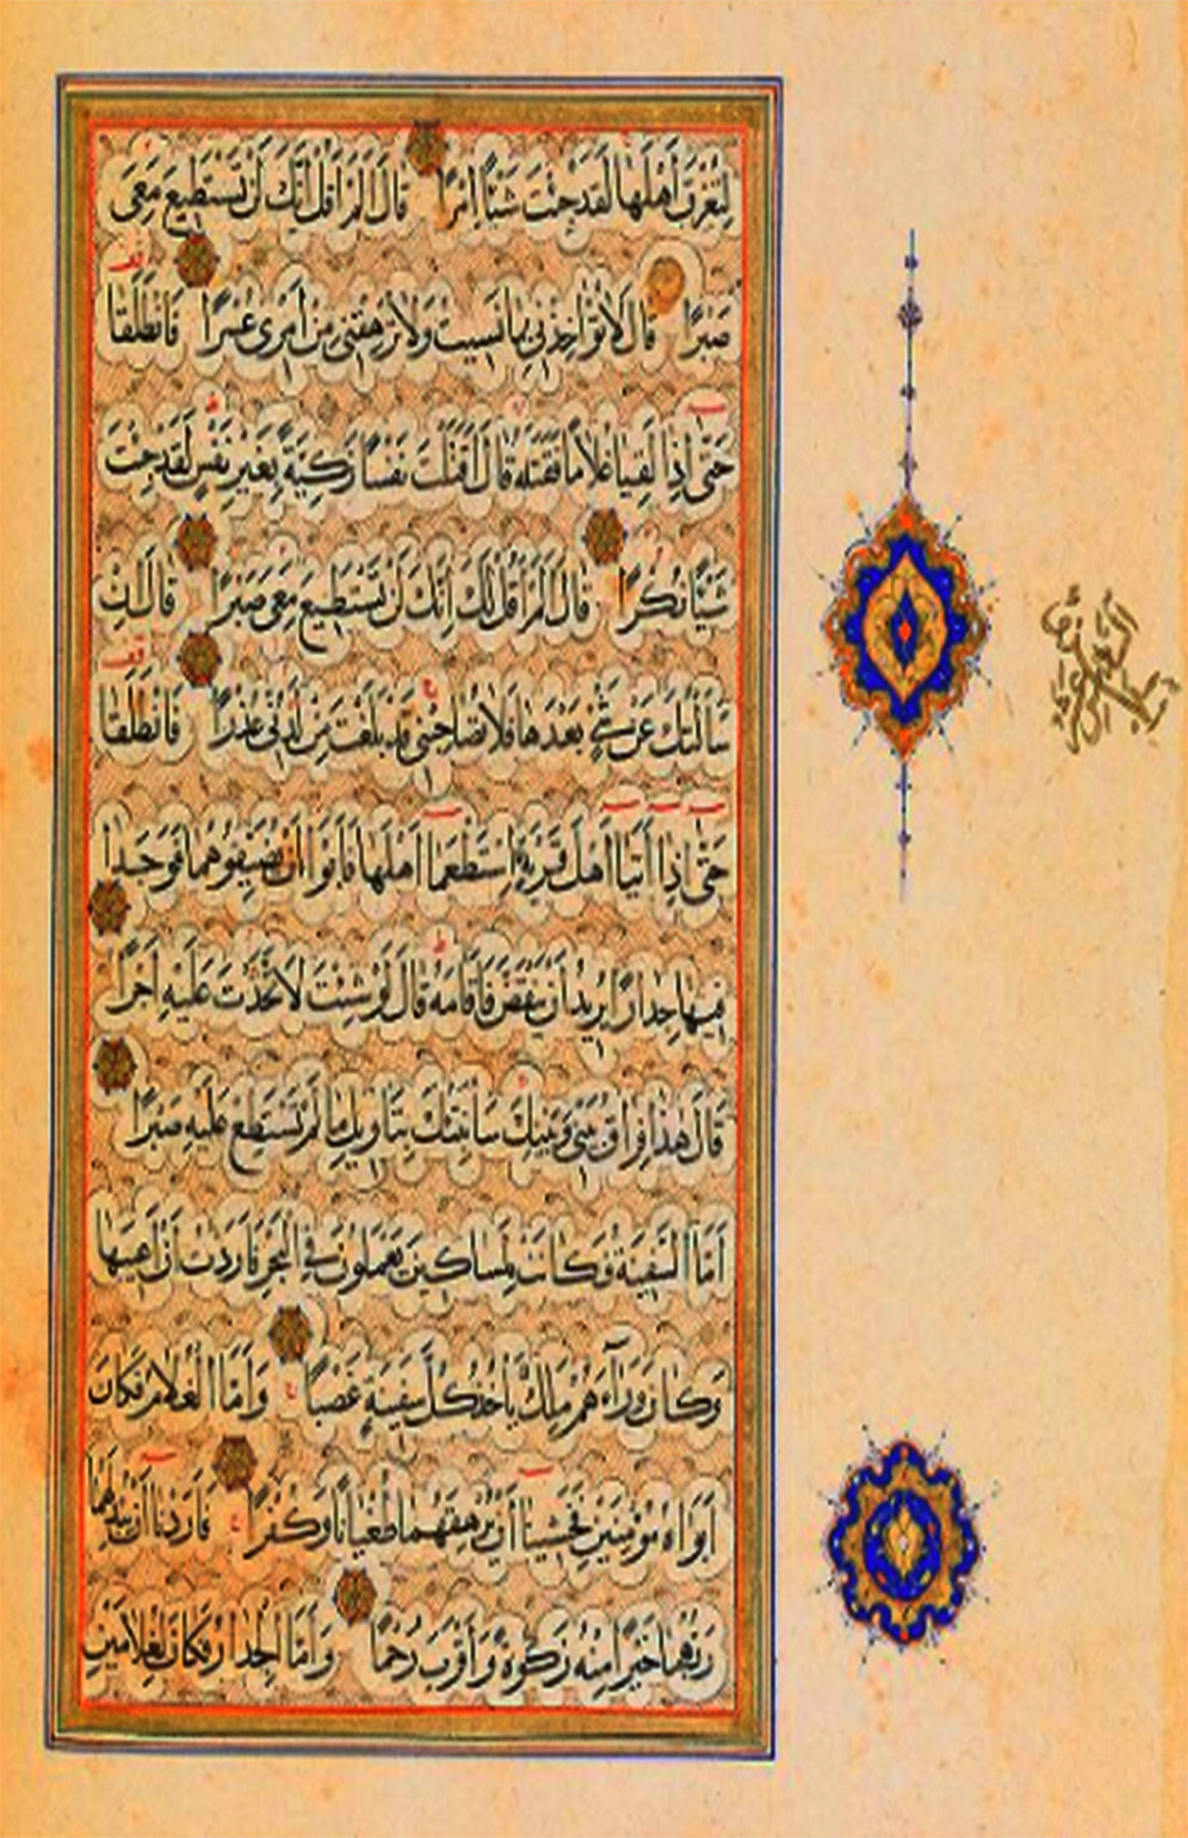 لِتُغْرِقَ أَهْلَهَا لَقَدْ جِئْتَ شَيْئًا إِمْرًا قَالَ أَلَمْ أَقُلْ إِنَّكَ لَنْ تَسْتَطِيعَ مَعِيَ
صَبْرًا قَالَ لَا تُؤَاخِذْنِي بِمَا نَسِيتُ وَلَا تُرْهِقْنِي مِنْ أَمْرِي عُسْرًا فَانْطَلَقَا
حَتَّى إِذَا لَقِيَا غُلَامًا فَقَتَلَهُ قَالَ أَقَتَلْتَ نَفْسًا زَكِيَّةً بِغَيْرِ نَفْسٍ لَقَدْ جِئْتَ
شَيْئًا نُكْرًا قَالَ أَلَمْ أَقُلْ لَكَ إِنَّكَ لَنْ تَسْتَطِيعَ مَعِيَ صَبْرًا قَالَ إِنْ
سَأَلْتُكَ عَنْ شَيْءٍ بَعْدَهَا فَلَا تُصَاحِبْنِي قَدْ بَلَغْتَ مِنْ لَدُنِّي عُذْرًا فَانْطَلَقَا
حَتَّى إِذَا أَتَيَا أَهْلَ قَرْيَةٍ اسْتَطْعَمَا أَهْلَهَا فَأَبَوْا أَنْ يُضَيِّفُوهُمَا فَوَجَدَا
فِيهَا جِدَارًا يُرِيدُ أَنْ يَنْقَضَّ فَأَقَامَهُ قَالَ لَوْ شِئْتَ لَاتَّخَذْتَ عَلَيْهِ أَجْرًا
قَالَ هَذَا فِرَاقُ بَيْنِي وَبَيْنِكَ سَأُنَبِّئُكَ بِتَأْوِيلِ مَا لَمْ تَسْتَطِعْ عَلَيْهِ صَبْرًا
أَمَّا السَّفِينَةُ فَكَانَتْ لِمَسَاكِينَ يَعْمَلُونَ فِي الْبَحْرِ فَأَرَدْتُ أَنْ أَعِيبَهَا
وَكَانَ وَرَاءَهُمْ مَلِكٌ يَأْخُذُ كُلَّ سَفِينَةٍ غَصْبًا وَأَمَّا الْغُلَامُ فَكَانَ
أَبَوَاهُ مُؤْمِنَيْنِ فَخَشِينَا أَنْ يُرْهِقَهُمَا طُغْيَانًا وَكُفْرًا فَأَرَدْنَا أَنْ يُبْدِلَهُمَا
رَبُّهُمَا خَيْرًا مِنْهُ زَكٰوةً وَأَقْرَبَ رُحْمًا وَأَمَّا الْجِدَارُ فَكَانَ لِغُلَامَيْنِ